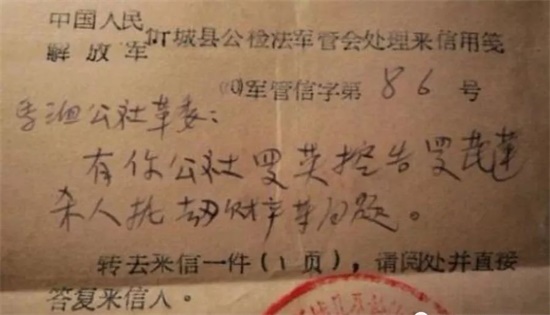 中国人民
解放军
城县公检法军管会处理来信用笺
军管信字第 86 号
公社革委：
有你公社罗英控告罗茂莲
杀人抢劫财产等问题。
转去来信一件（1页），请阅处并直接
答复来信人。